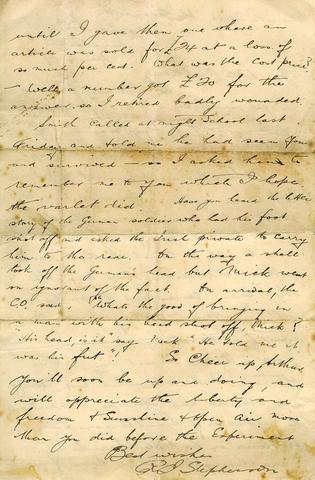 until I gave them one where an
article was sold for £74 at a loss of
so much per cent. What was the Cost price?
— Well a number got £70 for the
answer, so I retired badly wounded.
Smith called at night School last
Friday and told me he had seen You
and survived — so I asked him to
remember me to You which I hope
the varlet did. Have you heard the little
story of the German soldier who had his foot
shot off and asked the Irish private to carry
him to the rear. On the way a shell
took off the German's head but Mick went
on ignorant of the fact. On arrival, the
C.O. said, "Whats the good of bringing in
a man with his head shot off, Mick?
"His head, is it, say Mick "He told me it
was his fut". So Cheer up, Arthur
You'll soon be up and doing, and
will appreciate the liberty and
freedom & Sunshine & Open air more
than You did before the Experiment
Best wishes
Stephenson